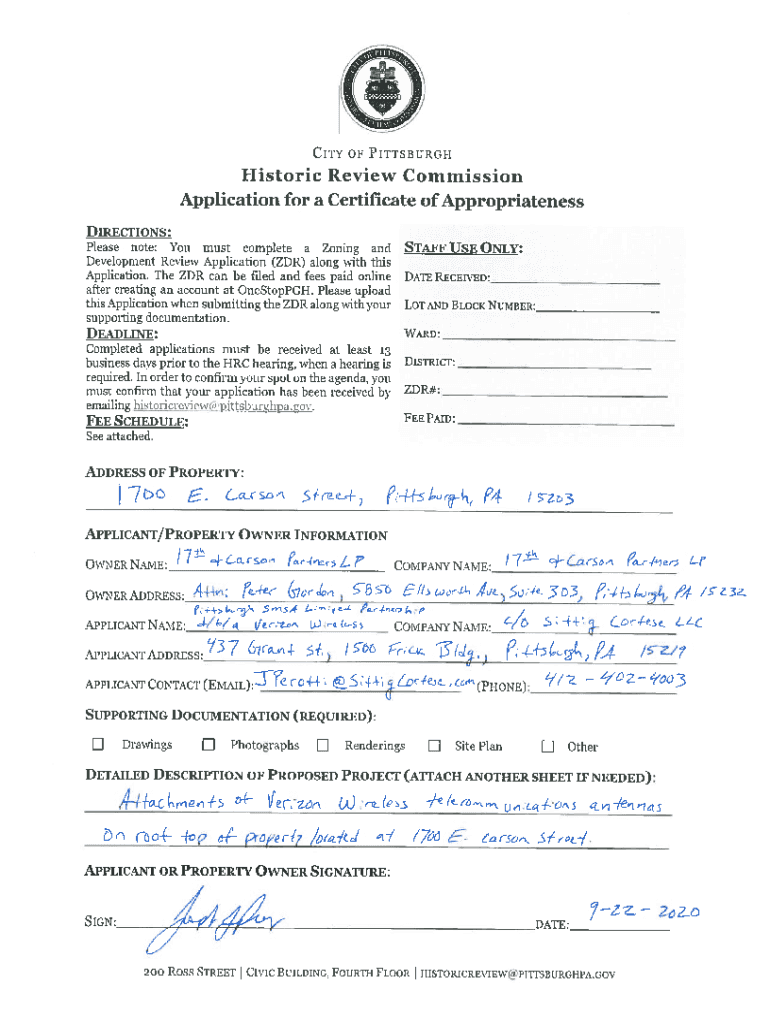 CITY OF PITTSBURGH
Historic Review Commission
Application for a Certificate of Appropriateness
DIRECTIONS:
Please note: You must complete a Zoning and
Development Review Application (ZDR) along with this
Application. The ZDR can be filed and fees paid online
after creating an account at OneStopPGH. Please upload
this Application when submitting the ZDR along with your
supporting documentation.
DEADLINE:
Completed applications must be received at least 13
business days prior to the HRC hearing, when a hearing is
required. In order to confirm your spot on the agenda, you
must confirm that your application has been received by
emailing historicreview@pittsburghpa.gov.
FEE SCHEDULE:
See attached.
STAFF USE ONLY:
DATE RECEIVED:
LOT AND BLOCK NUMBER:
WARD:
DISTRICT:
ZDR#:
FEE PAID:
ADDRESS OF PROPERTY:
1700 E. Carson Street, Pittsburgh, PA 15203
APPLICANT/PROPERTY OWNER INFORMATION
OWNER NAME: 17th & Carson Partners LP COMPANY NAME: 17th & Carson Partners LP
OWNER ADDRESS: Attn: Peter Gordon, 5850 Ellsworth Ave, Suite 303, Pittsburgh, PA 15232
Pittsburgh SMSA Limited Partnership
APPLICANT NAME: d/b/a Verizon Wireless COMPANY NAME: c/o Sittig Cortese LLC
APPLICANT ADDRESS: 437 Grant St., 1500 Frick Bldg., Pittsburgh, PA 15219
APPLICANT CONTACT (EMAIL): JPerotti@SittigCortese.com (PHONE): 412-402-4003
SUPPORTING DOCUMENTATION (REQUIRED):
Drawings Photographs Renderings Site Plan Other
DETAILED DESCRIPTION OF PROPOSED PROJECT (ATTACH ANOTHER SHEET IF NEEDED):
Attachments of Verizon Wireless telecommunications antennas
on roof top of property located at 1700 E. Carson Street.
APPLICANT OR PROPERTY OWNER SIGNATURE:
SIGN: DATE: 9-22-2020
200 ROSS STREET | CIVIC BUILDING, FOURTH FLOOR | HISTORICREVIEW@PITTSBURGHPA.GOV